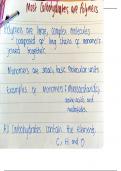 Most Carbohydrates are Polymers
Polymers are large, complex molecules
composed of long chains of monomers
joined together.
Monomers are small, basic molecular units.
Examples of Monomers: Monosaccharides,
amino acids and
nucleotides.
All Carbohydrates contain the elements
C, H and O